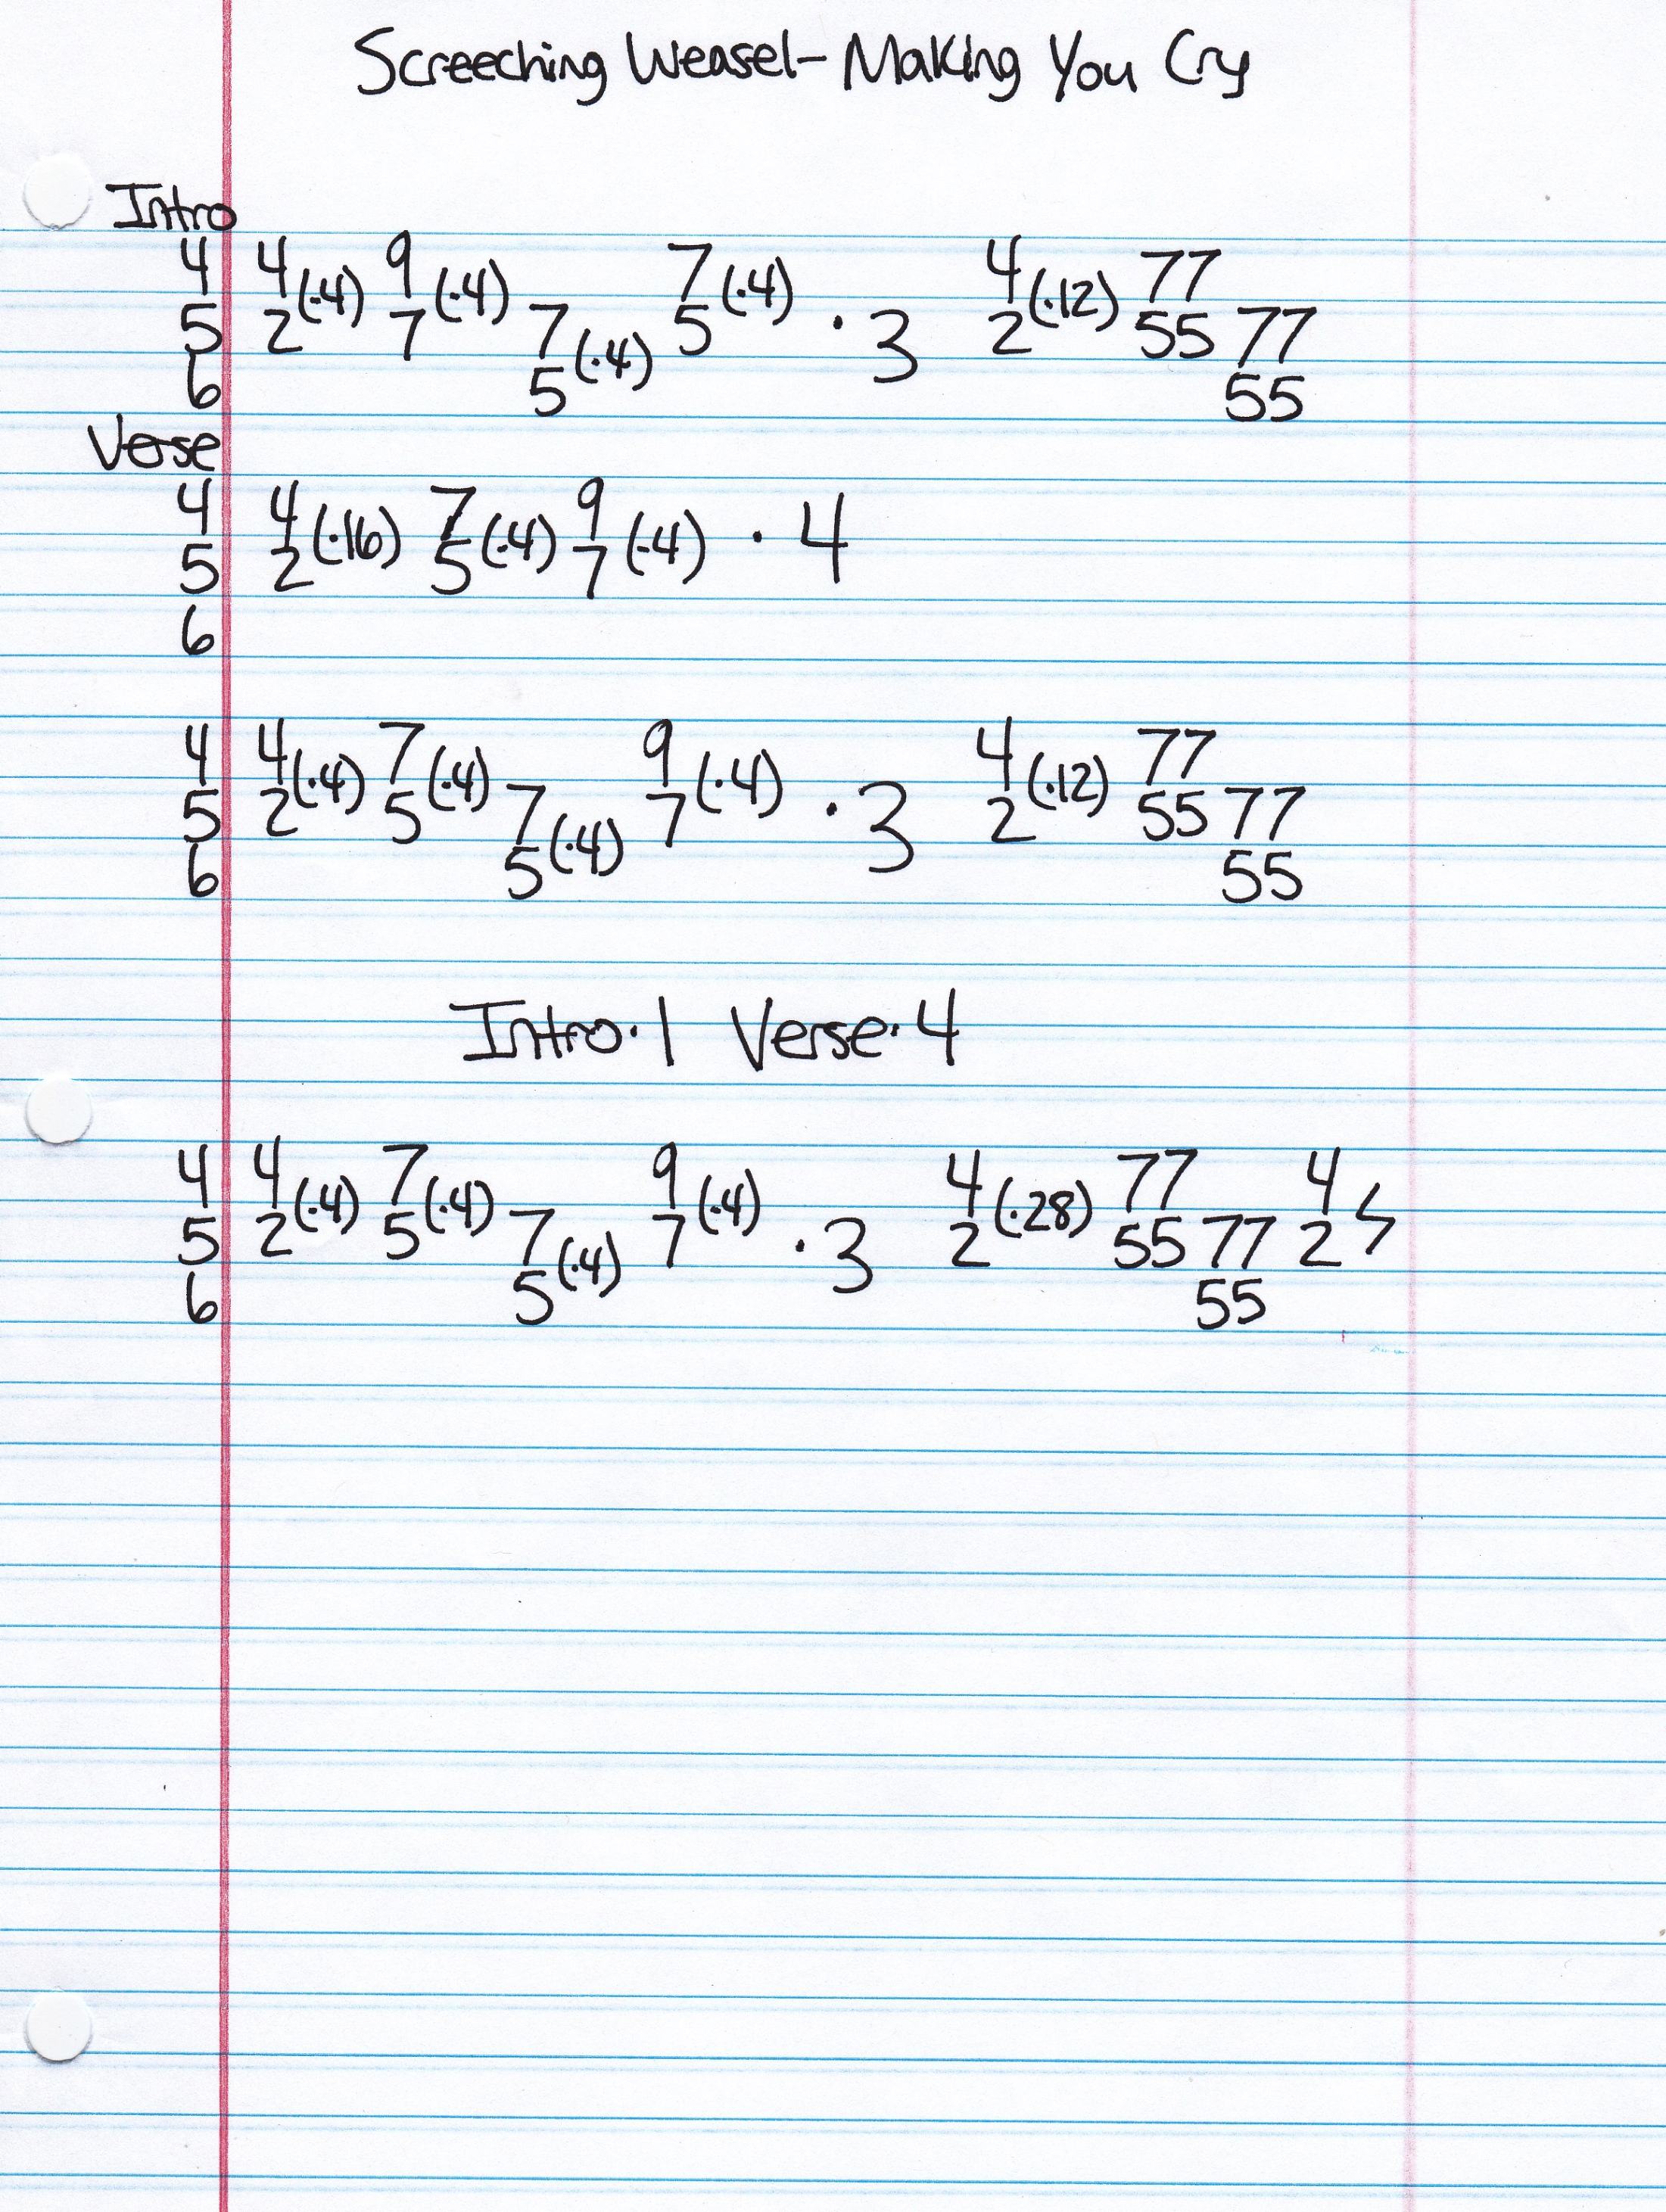 Screeching Weasel - Making You Cry
Intro
4 4 9 7 4 77
5 2 (·4) 7 (·4) 7 5 (·4) · 3 2 (·12) 55 77
6 5 (·4) 55
Verse
4 4 7 9
5 2 (·16) 5 (·4) 7 (·4) · 4
6
4 4 7 9 4 77
5 2 (·4) 5 (·4) 7 7 (·4) · 3 2 (·12) 55 77
6 5 (·4) 55
Intro·1 Verse·4
4 4 7 9 4 77 4
5 2 (·4) 5 (·4) 7 7 (·4) · 3 2 (·28) 55 77 2
6 5 (·4) 55